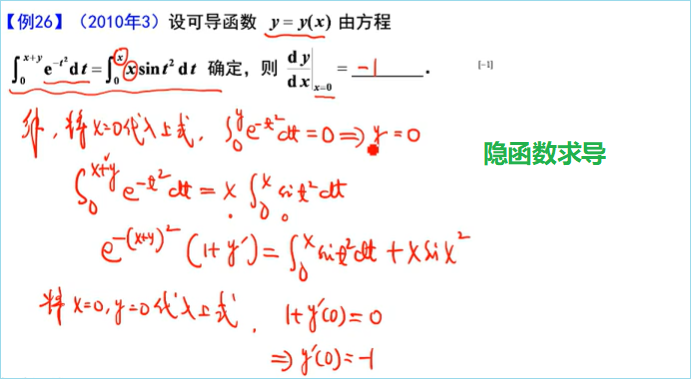 【例26】（2010年3）设可导函数 y = y(x) 由方程
∫₀^{x+y} e^{-t²} dt = ∫₀^{x} x sin t² dt 确定，则 dy/dx |_{x=0} = -1 .
[-1]
解，将x=0代入上式，∫₀^{y} e^{-t²} dt = 0 ⇒ y = 0
隐函数求导
∫₀^{x+y} e^{-t²} dt = x ∫₀^{x} sin t² dt
e^{-(x+y)²} (1+y′) = ∫₀^{x} sin t² dt + x sin x²
将 x=0, y=0 代入上式， 1+y′(0) = 0
⇒ y′(0) = -1